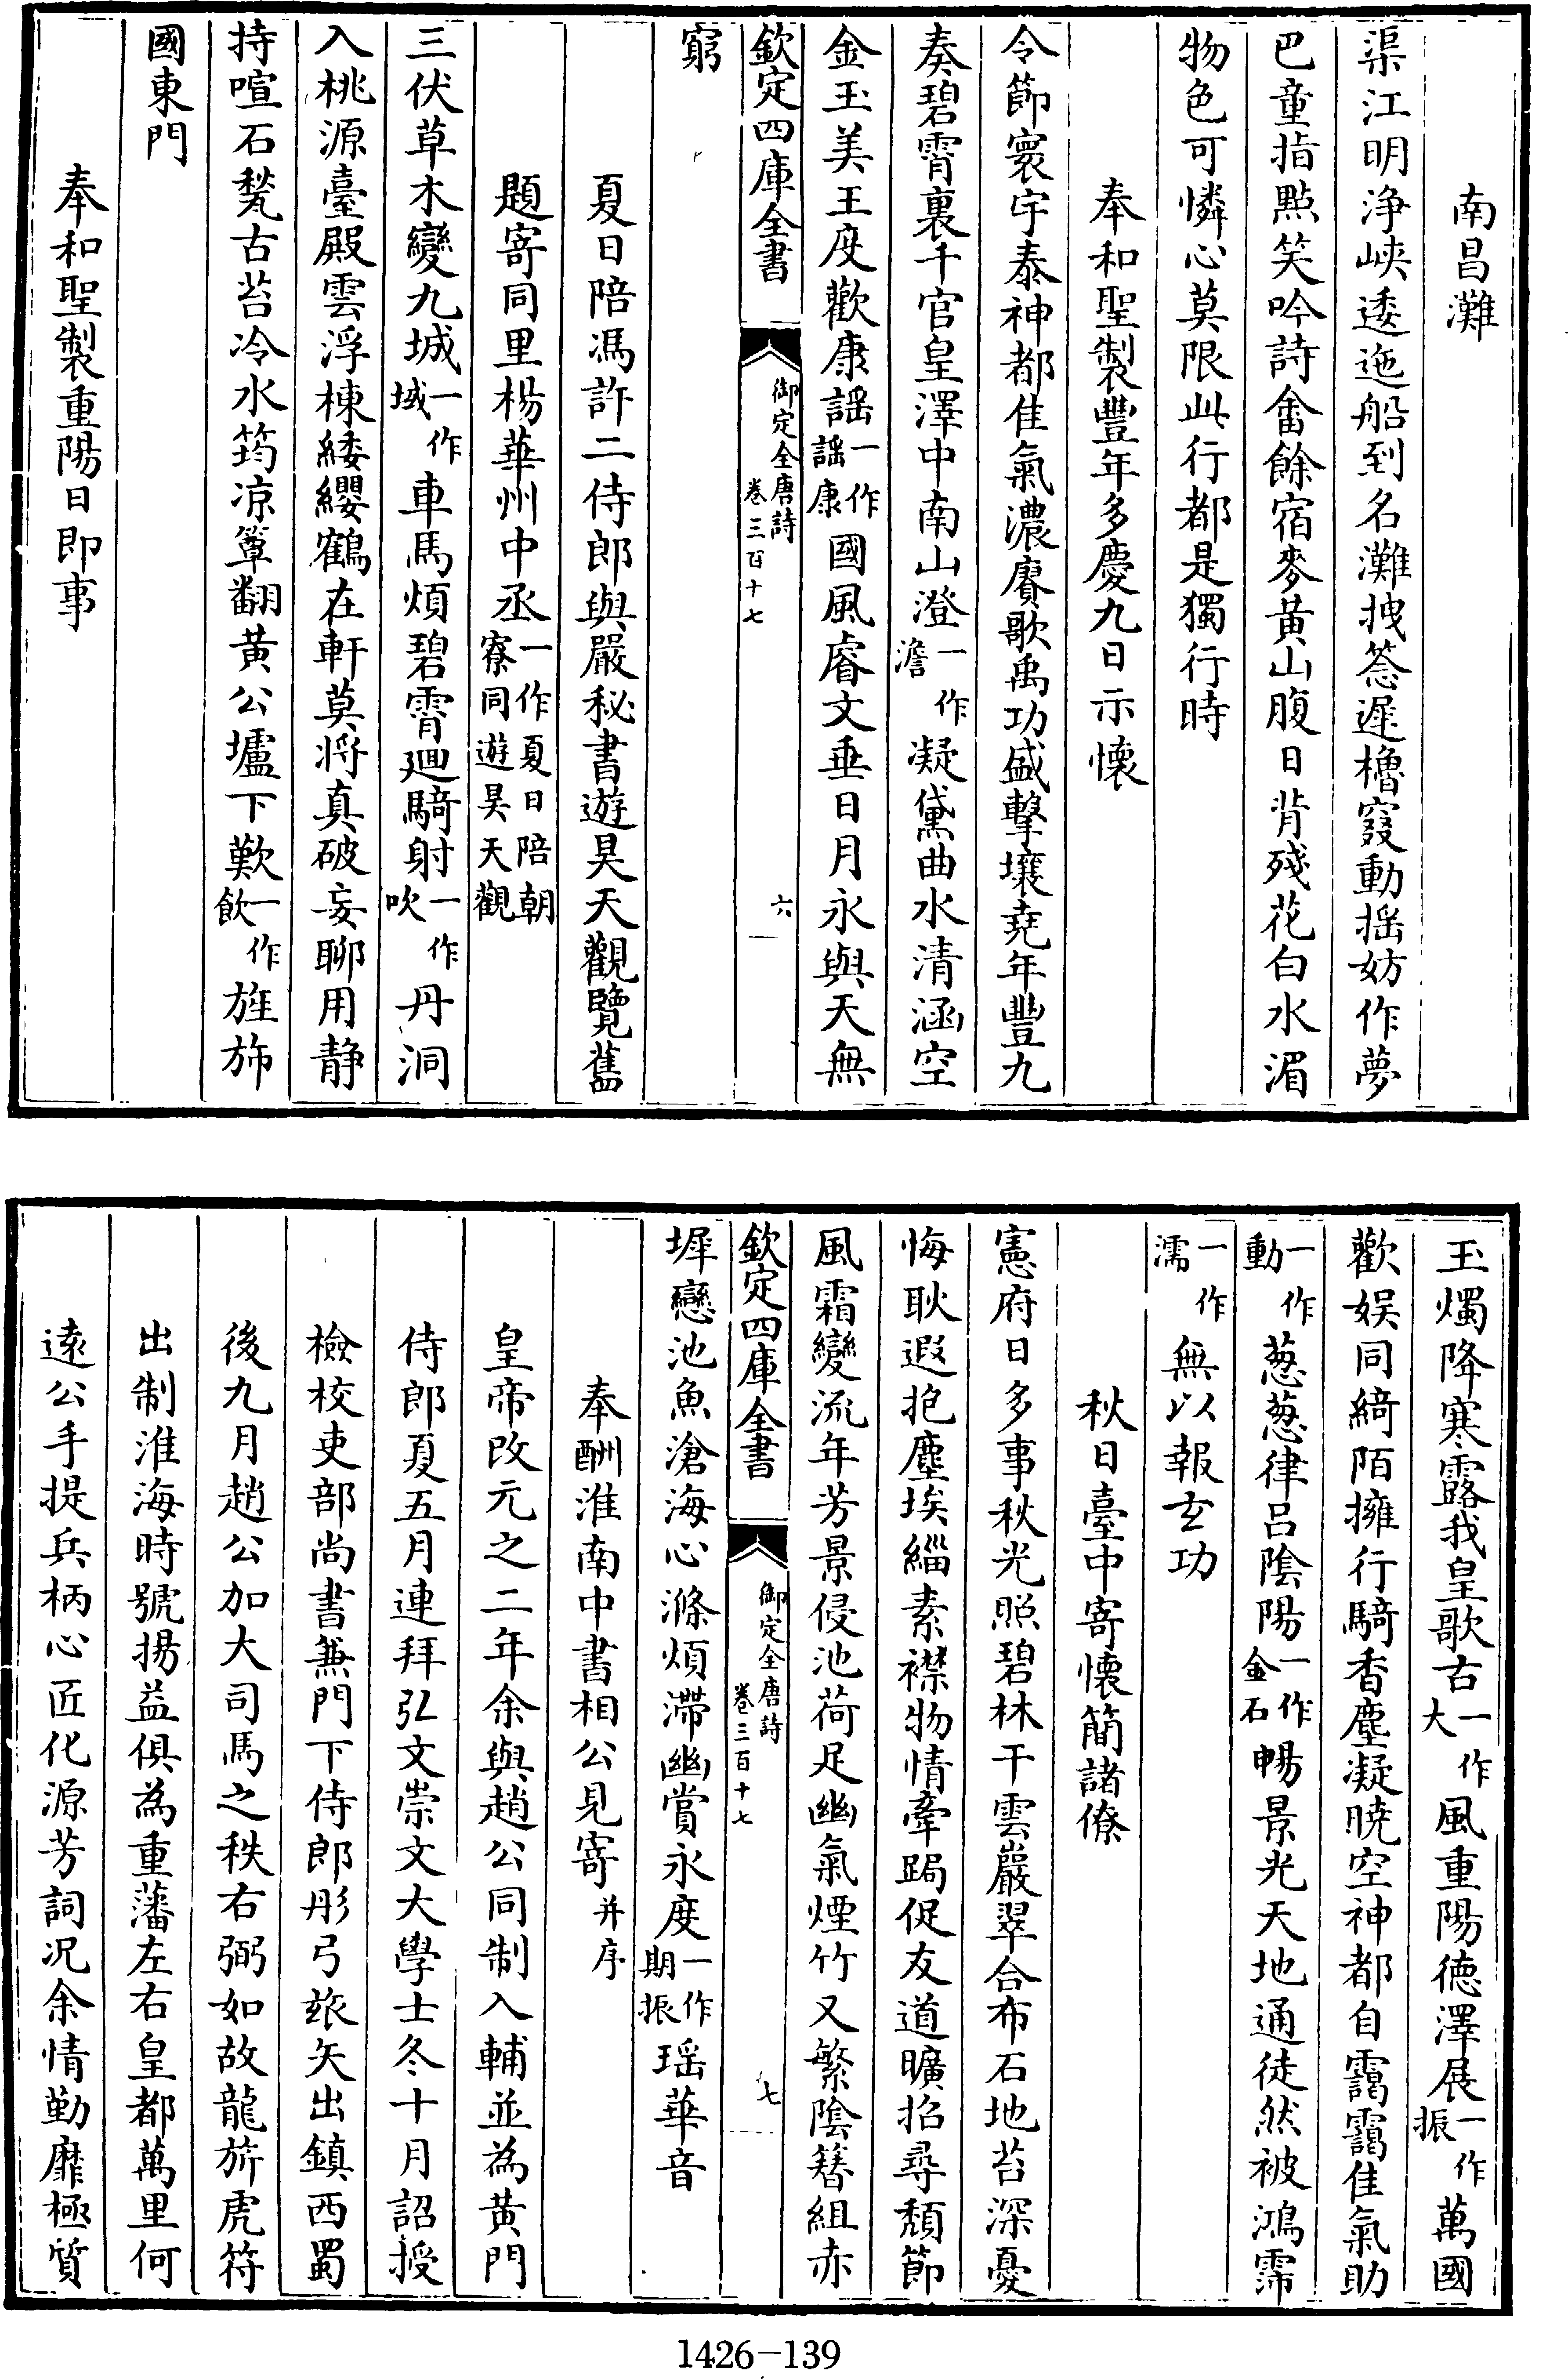 南昌灘
渠江明浄峽逶迤船到名灘拽䈴遲櫓窡動揺妨作夢
巴童指點笑吟詩畬餘宿麥黃山腹日背殘花白水湄
物色可憐心莫限此行都是獨行時
奉和聖製豐年多慶九日示懷
令節寰宇泰神都佳氣濃賡歌禹功盛擊壤堯年豐九
奏碧霄裏千官皇澤中南山澄一作澹凝黛曲水清涵空
金玉美王度歡康謡一作謡康國風睿文垂日月永與天無
欽定四庫全書 御定全唐詩 卷三百十七 六
窮
夏日陪馮許二侍郎與嚴秘書遊昊天觀覽舊
題寄同里楊華州中丞一作夏日陪朝寮同遊昊天觀
三伏草木變九城一作域車馬煩碧霄迴騎射一作吹丹洞
入桃源臺殿雲浮棟緌纓鶴在軒莫将真破妄聊用靜
持喧石甃古苔冷水筠凉簟翻黃公壚下歎一作飲旌斾
國東門
奉和聖製重陽日即事
玉燭降寒露我皇歌古一作大風重陽德澤展一作振萬國
歡娱同綺陌擁行騎香塵凝曉空神都自靄靄佳氣助
一作動葱葱律吕陰陽一作金石暢景光天地通徒然被鴻霈
一作濡無以報玄功
秋日臺中寄懷簡諸僚
憲府日多事秋光照碧林干雲巖翠合布石地苔深憂
悔耿遐抱塵埃緇素襟物情牽跼促友道曠招尋頽節
風霜變流年芳景侵池荷足幽氣煙竹又繁陰簪組赤
欽定四庫全書 御定全唐詩 卷三百十七 七
墀戀池魚滄海心滌煩滯幽賞永度一作期振瑶華音
奉酬淮南中書相公見寄并序
皇帝改元之二年余與趙公同制入輔並為黃門
侍郎夏五月連拜弘文崇文大學士冬十月詔授
檢校吏部尚書兼門下侍郎彤弓玈矢出鎮西蜀
後九月趙公加大司馬之秩右弼如故龍旂虎符
出制淮海時號揚益俱為重藩左右皇都萬里何
遠公手提兵柄心匠化源芳詞况余情勤靡極質
1426-139